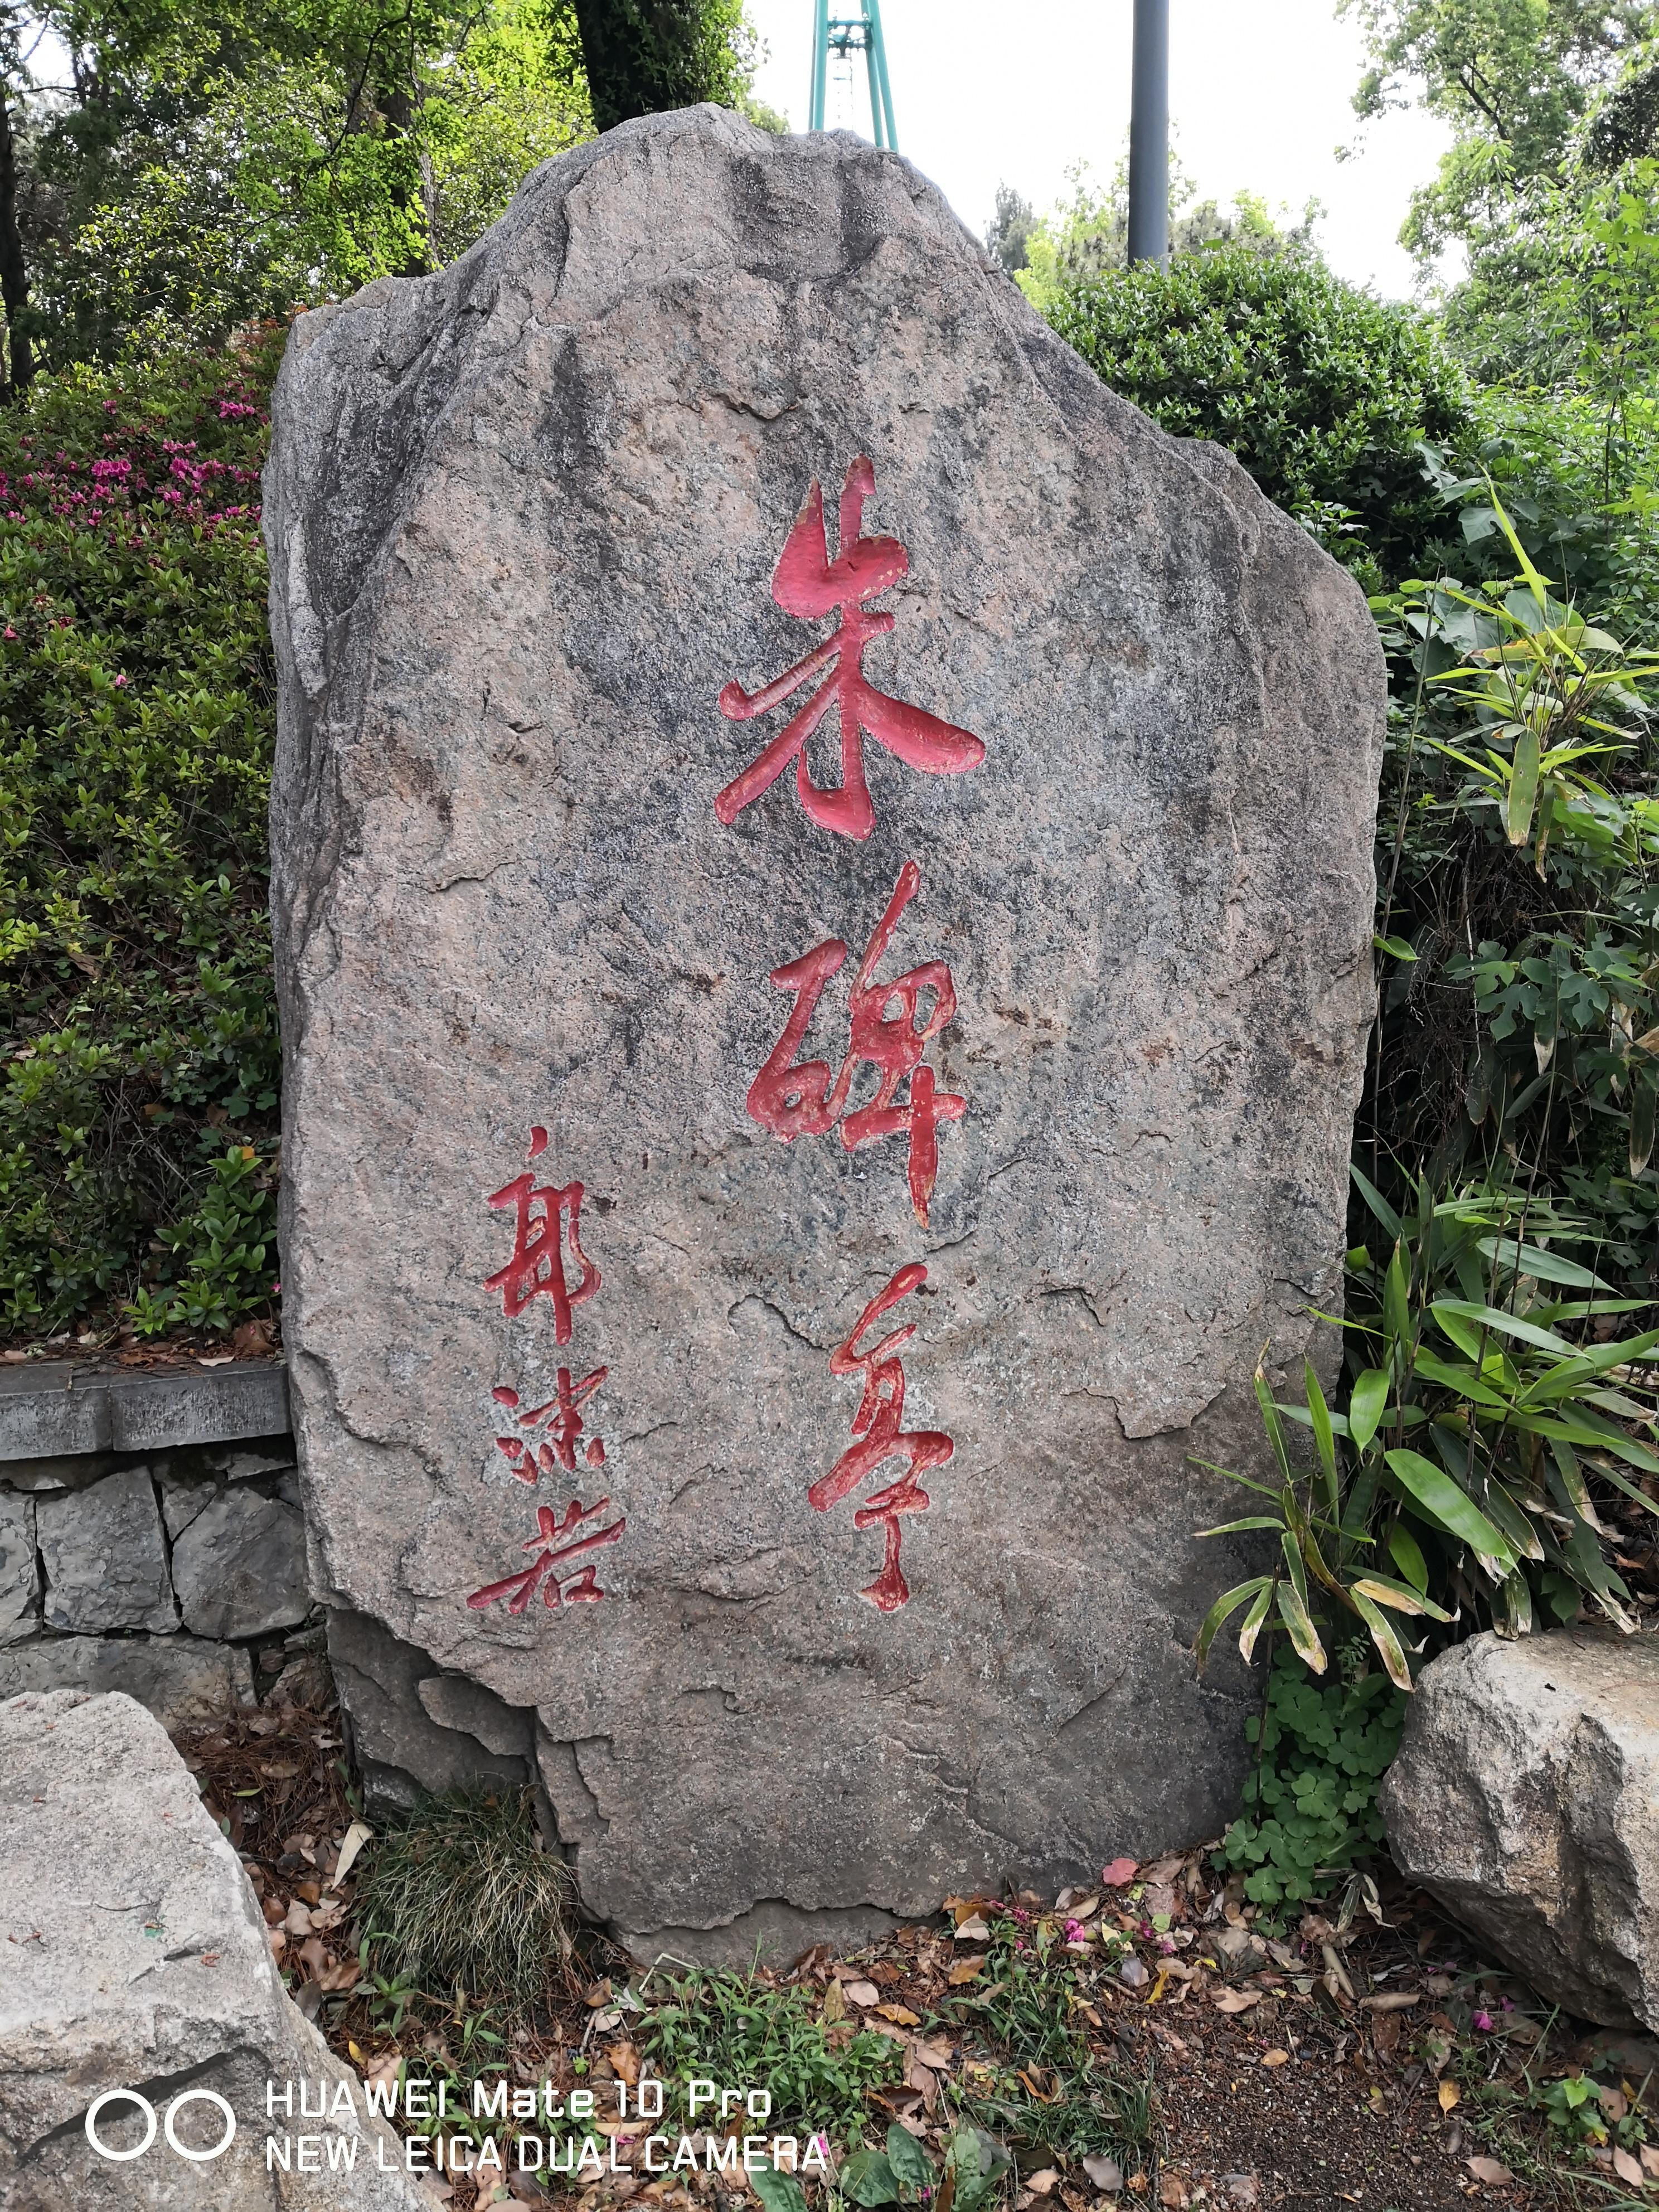 朱碑亭
郭沫若
HUAWEI Mate 10 Pro
NEW LEICA DUAL CAMERA